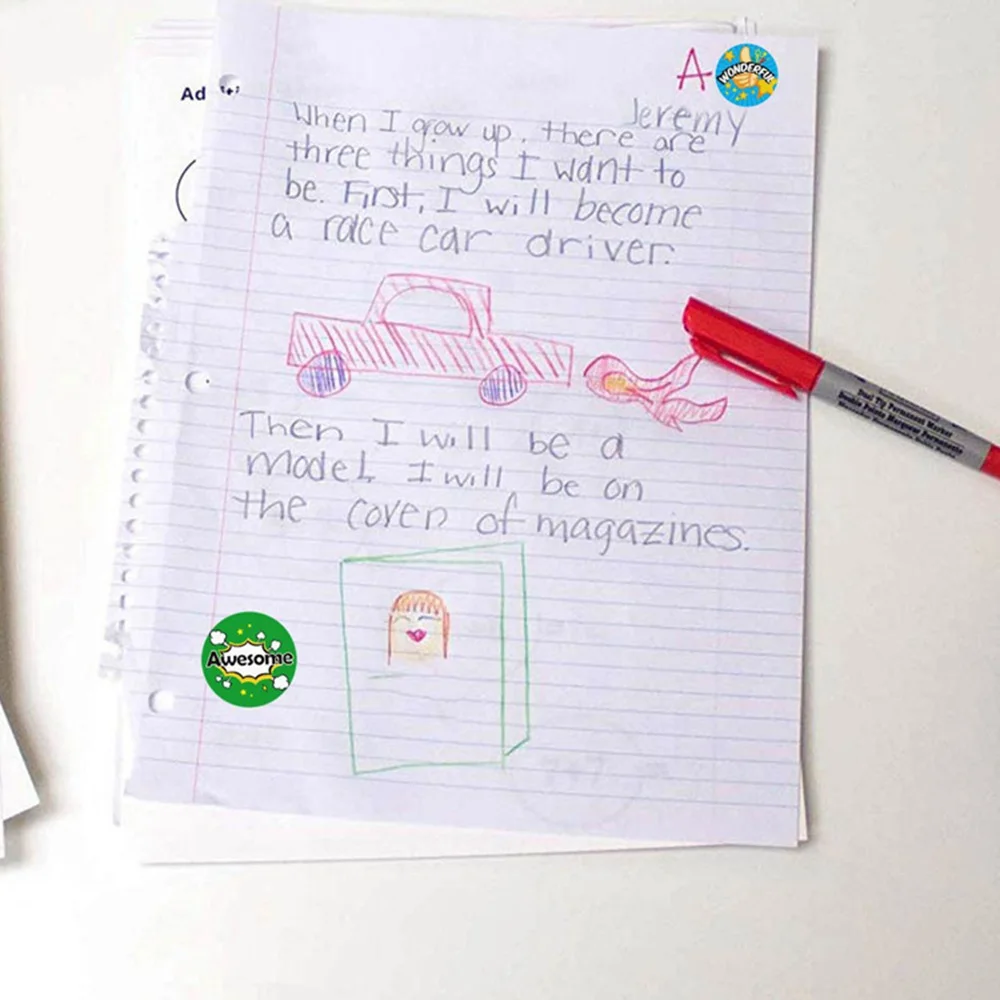 A
WONDERFUL
Jeremy
Ad
When I grow up. there are
three things I want to
be. First, I will become
a race car driver.
Then I will be a
model. I will be on
the cover of magazines.
Awesome
Dual Tip Permanent Marker
Double Pointe Marqueur Permanente